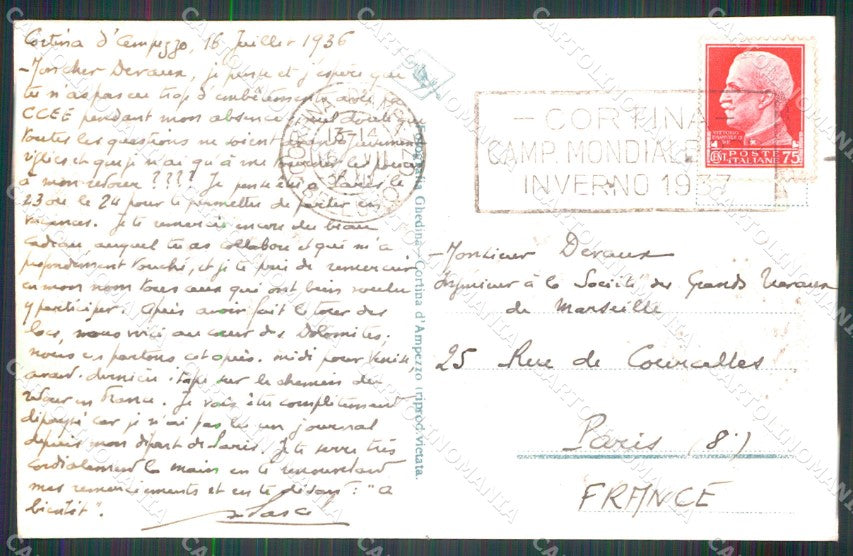 Cortina d'Ampezzo, 16 Juillet 1936
- Mon cher Devaux, je pense et j'espère que
tu n'as pas eu trop d'embêtements avec la
CCEE pendant mon absence et que
toutes les questions ne soient
réglées et que je n'ai qu'à me
à mon retour ???? Je pense être à Paris le
23 ou le 24 pour te permettre de partir en
vacances. Je te remercie encore du beau
cadeau, auquel tu as collaboré et qui m'a
profondément touché, et je te prie de remercier
en mon nom tous ceux qui ont bien voulu
y participer. Après avoir fait le tour des
lacs, nous voici au cœur des Dolomites;
nous en partons cet après-midi pour Venise,
avant-dernière étape sur le chemin du
retour en France. Je vais être complètement
dépaysé car je n'ai pas lu un journal
depuis mon départ de Paris. Je te serre très
cordialement la main en te renouvelant
mes remerciements et en te disant: "A
bientôt".
Fotografia Ghedina - Cortina d'Ampezzo (riprod. vietata.
13-14
- CORTINA -
CAMP. MONDIALI
INVERNO 1937
POSTE
ITALIANE
CENT. 75
- Monsieur Devaux
Ingénieur à la Société des Grands Travaux
de Marseille
25 Rue de Courcelles
Paris (8e)
FRANCE
CARTOLINOMANIA